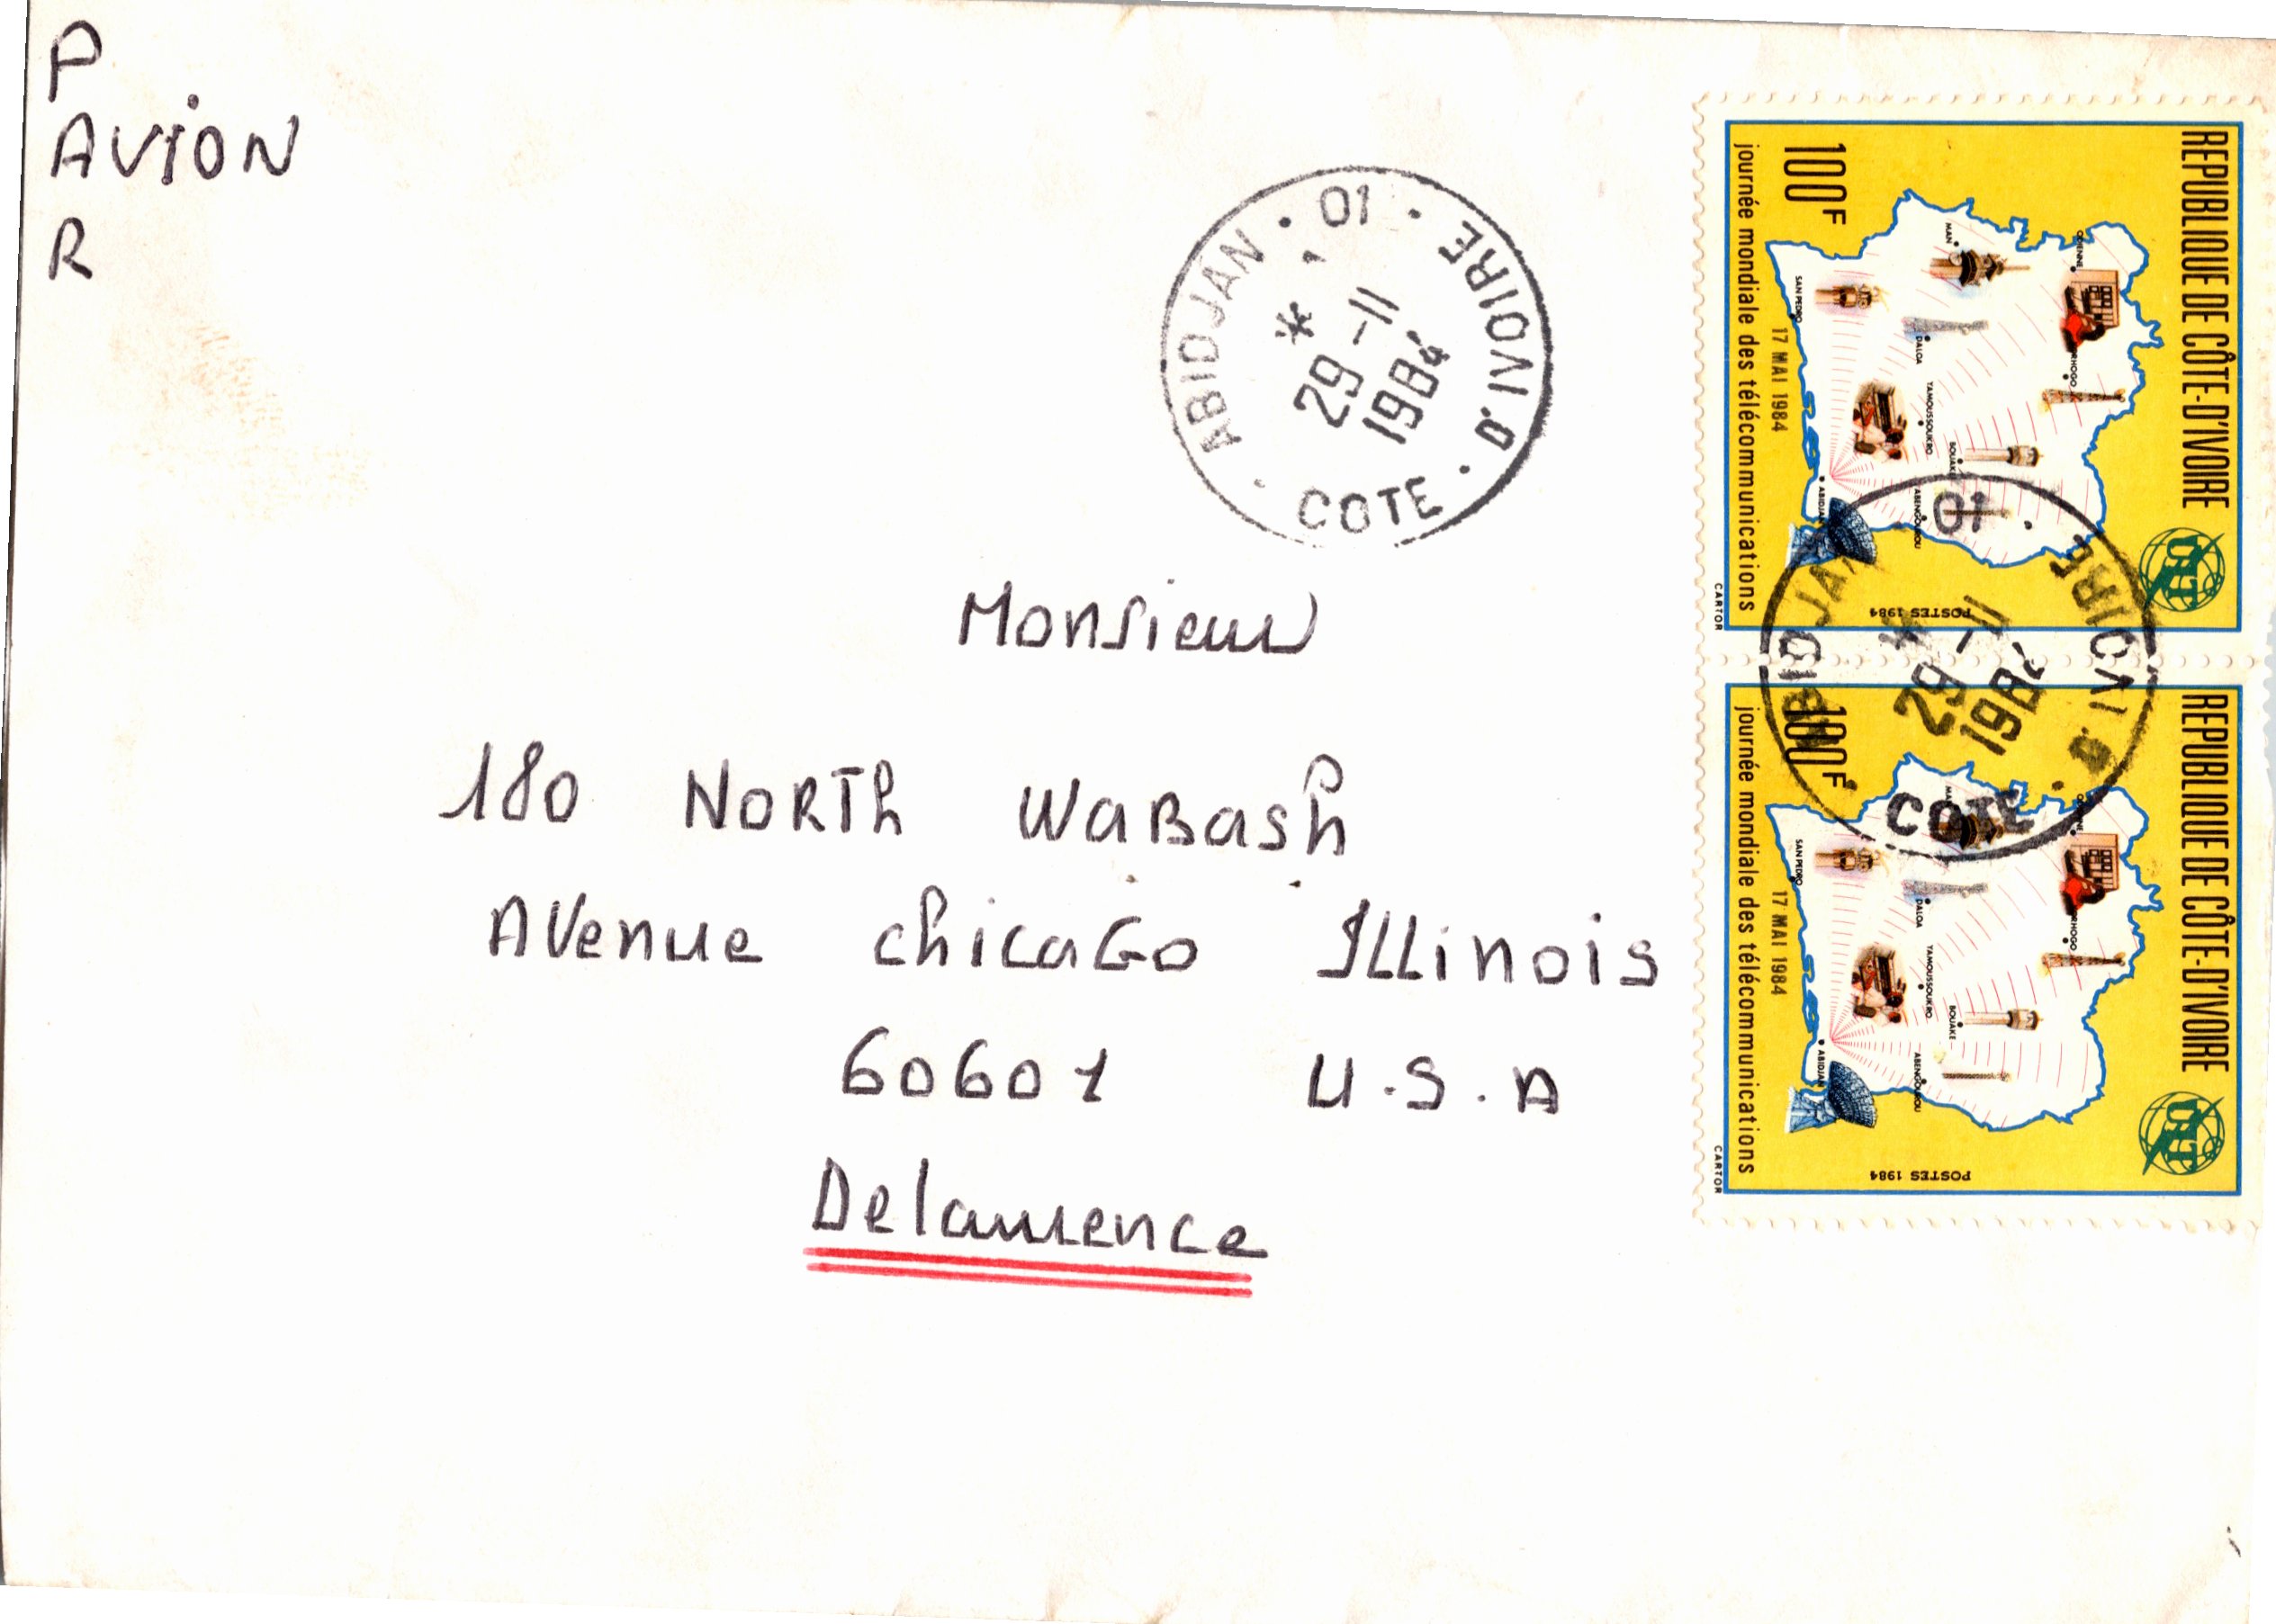 P
AVION
R
ABIDJAN · 01 · COTE · D'IVOIRE
*
29-11
1984
Monsieur
180 NORTh WaBash
AVenue chicaGo ILLinois
60601 U.S.A
Delawence
REPUBLIQUE DE CÔTE-D'IVOIRE
100F
journée mondiale des télécommunications
17 MAI 1984
MAN
ODIENNE
SAN PEDRO
DALOA
YAMOUSSOUKRO
BOUAKE
ABIDJAN
ABENGOUROU
UIT
POSTES 1984
CARTOR
ABIDJAN 01 · COTE · D'IVOIRE
*
29-11
198
REPUBLIQUE DE CÔTE-D'IVOIRE
100F
journée mondiale des télécommunications
17 MAI 1984
SAN PEDRO
DALOA
YAMOUSSOUKRO
BOUAKE
ABIDJAN
ABENGOUROU
UIT
POSTES 1984
CARTOR